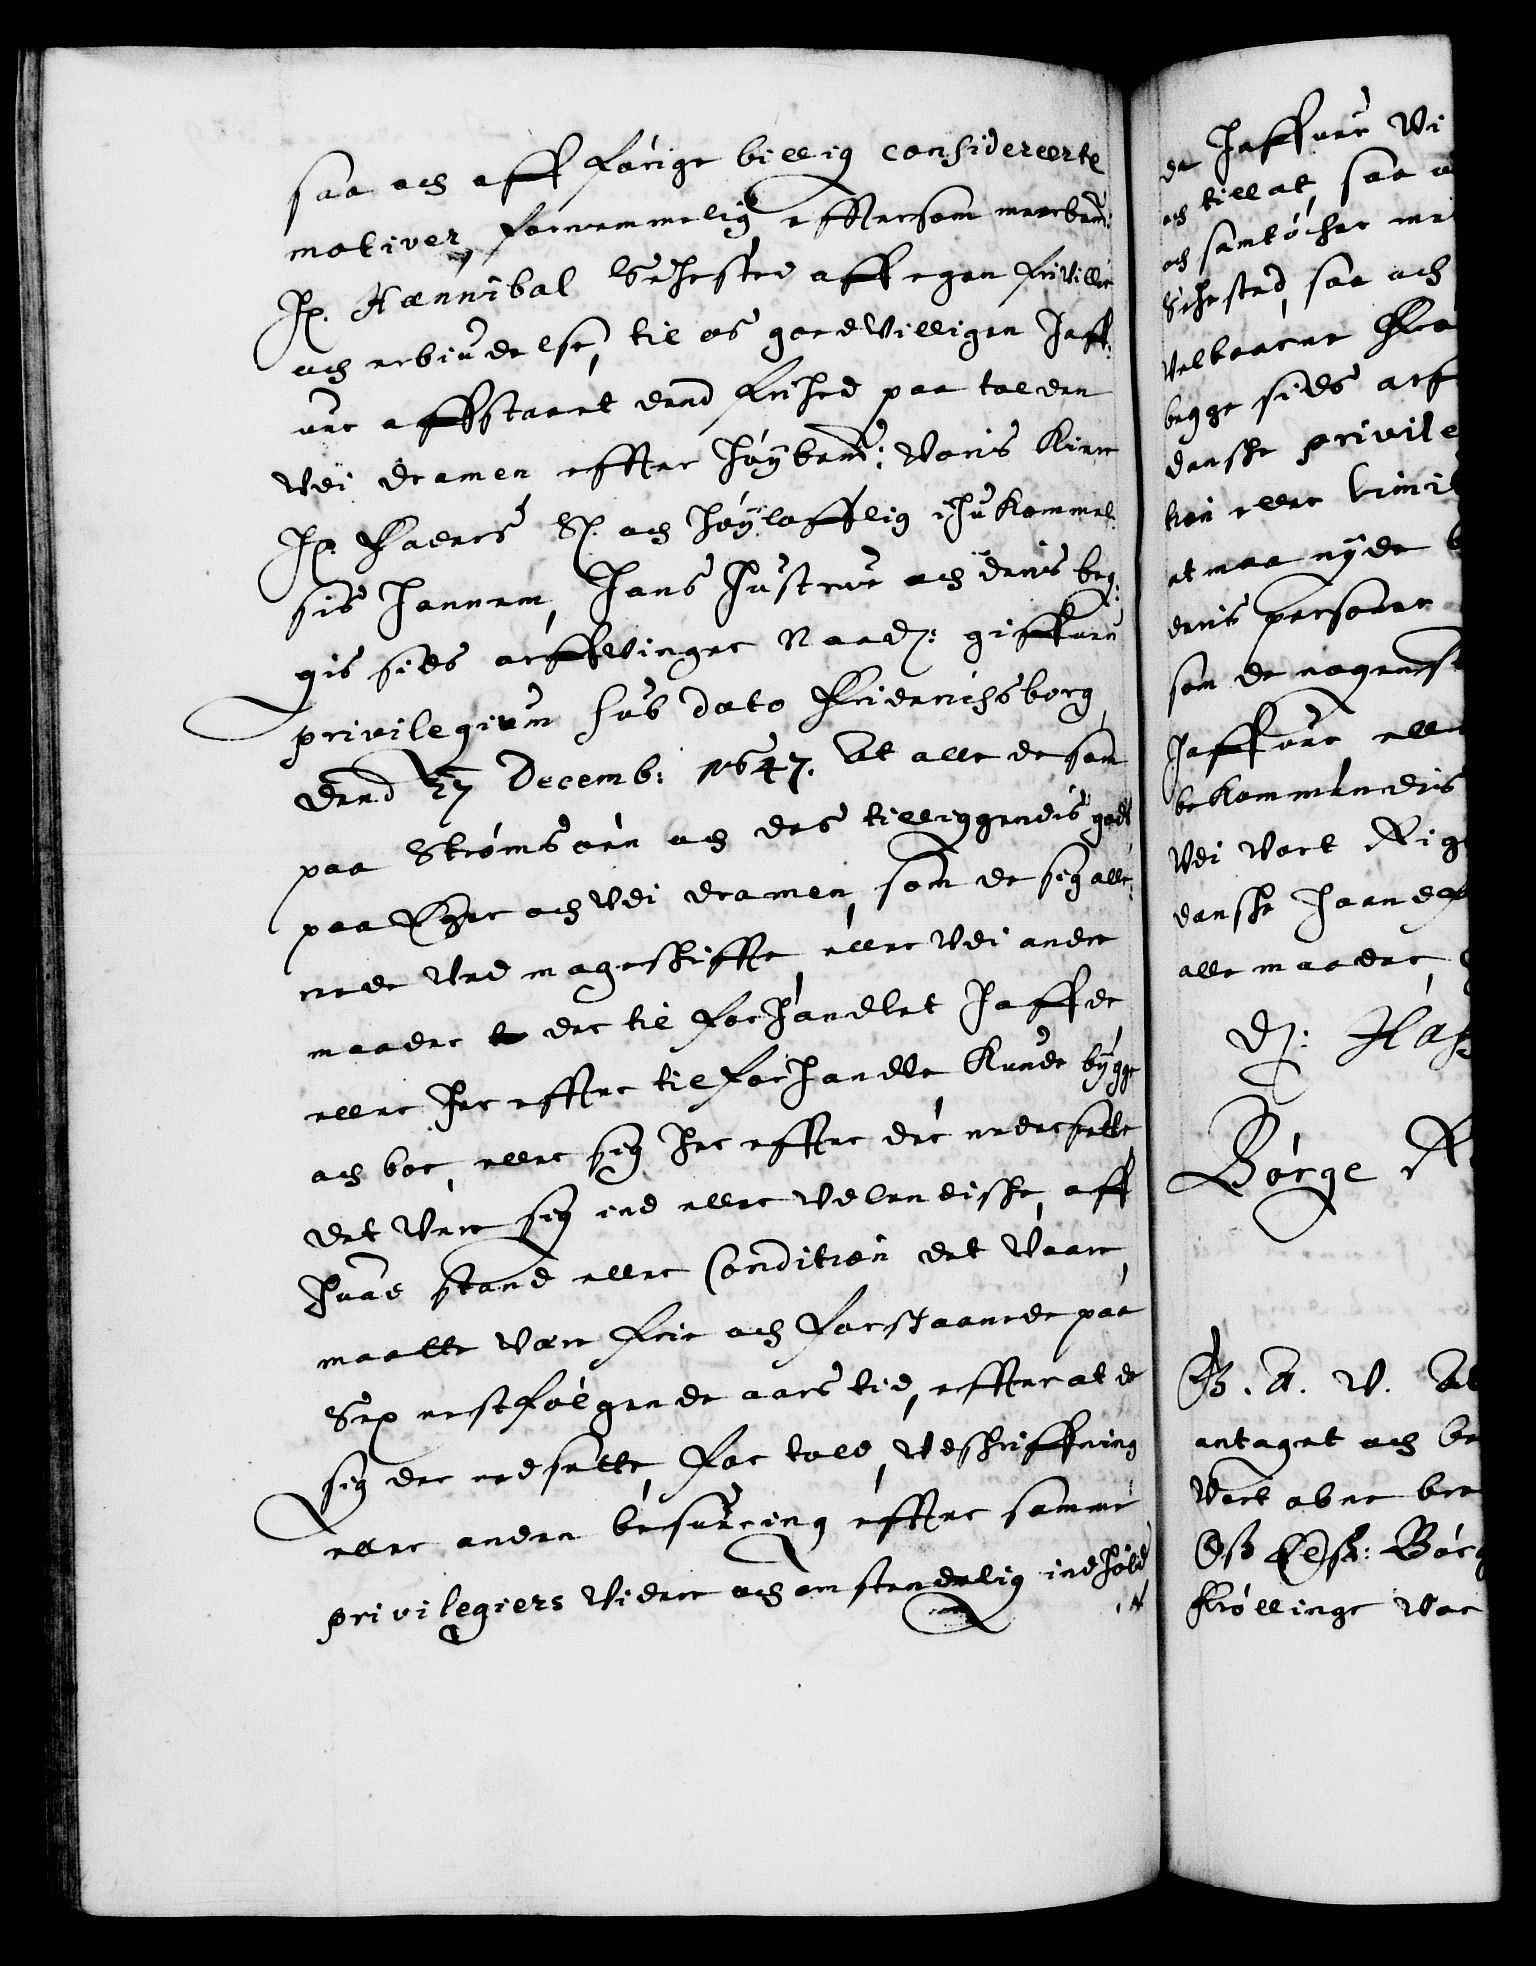 saa och aff forige billig considererte
motiver, fornemmelig effttersom meerbem:te
Hr. Hannibal Sehested aff egen friville
och erbiudelse, til os goedvilligen haff:
ver affstaaet dend frihed paa tolden
udi Dramen effter høybem:te Voris Kiere
Hr. Faders Sl. och høyloffllig ihukommel
sis hannem, hans hustrue och deris beg:
gis sides arffvinger Naad: giffven
privilegium sub dato Friderichsborg
dend 27 Decemb: 1647. At alle de som
paa Strømsøen och des tilliggendis gods
paa Eger och udi Dramen, som de sig alle:
rede ved mageskiffte, eller udi andre
maader der til forhandlet haffde
eller her effter tilforhandle kunde bygge
och boe, eller sig her effter der nedersette
det være sig ind eller udlendiske, aff
huad stand eller Condition det vaare,
maatte være frie och forskaanede paa
Sex nestfølgende aars tid, effterat de
sig der nedsatte, for told, udskriffning
eller anden besuæring effter samme
privilegiers videre och omstendelig indhold
de haffver Vi
och tillat, saa
och samtøcher
Sehested, saa och
velbaarne
begge sides arf
danske privile
tion eller
at maa nyde
deris persone
som de nogensi
haffver elle
bekommendis
udi vort Rige
danske
alle maader,
Børge
G. A. V. At
antaget och be
vort obne bre
Os Elsk: Børg
Krøllinge vor